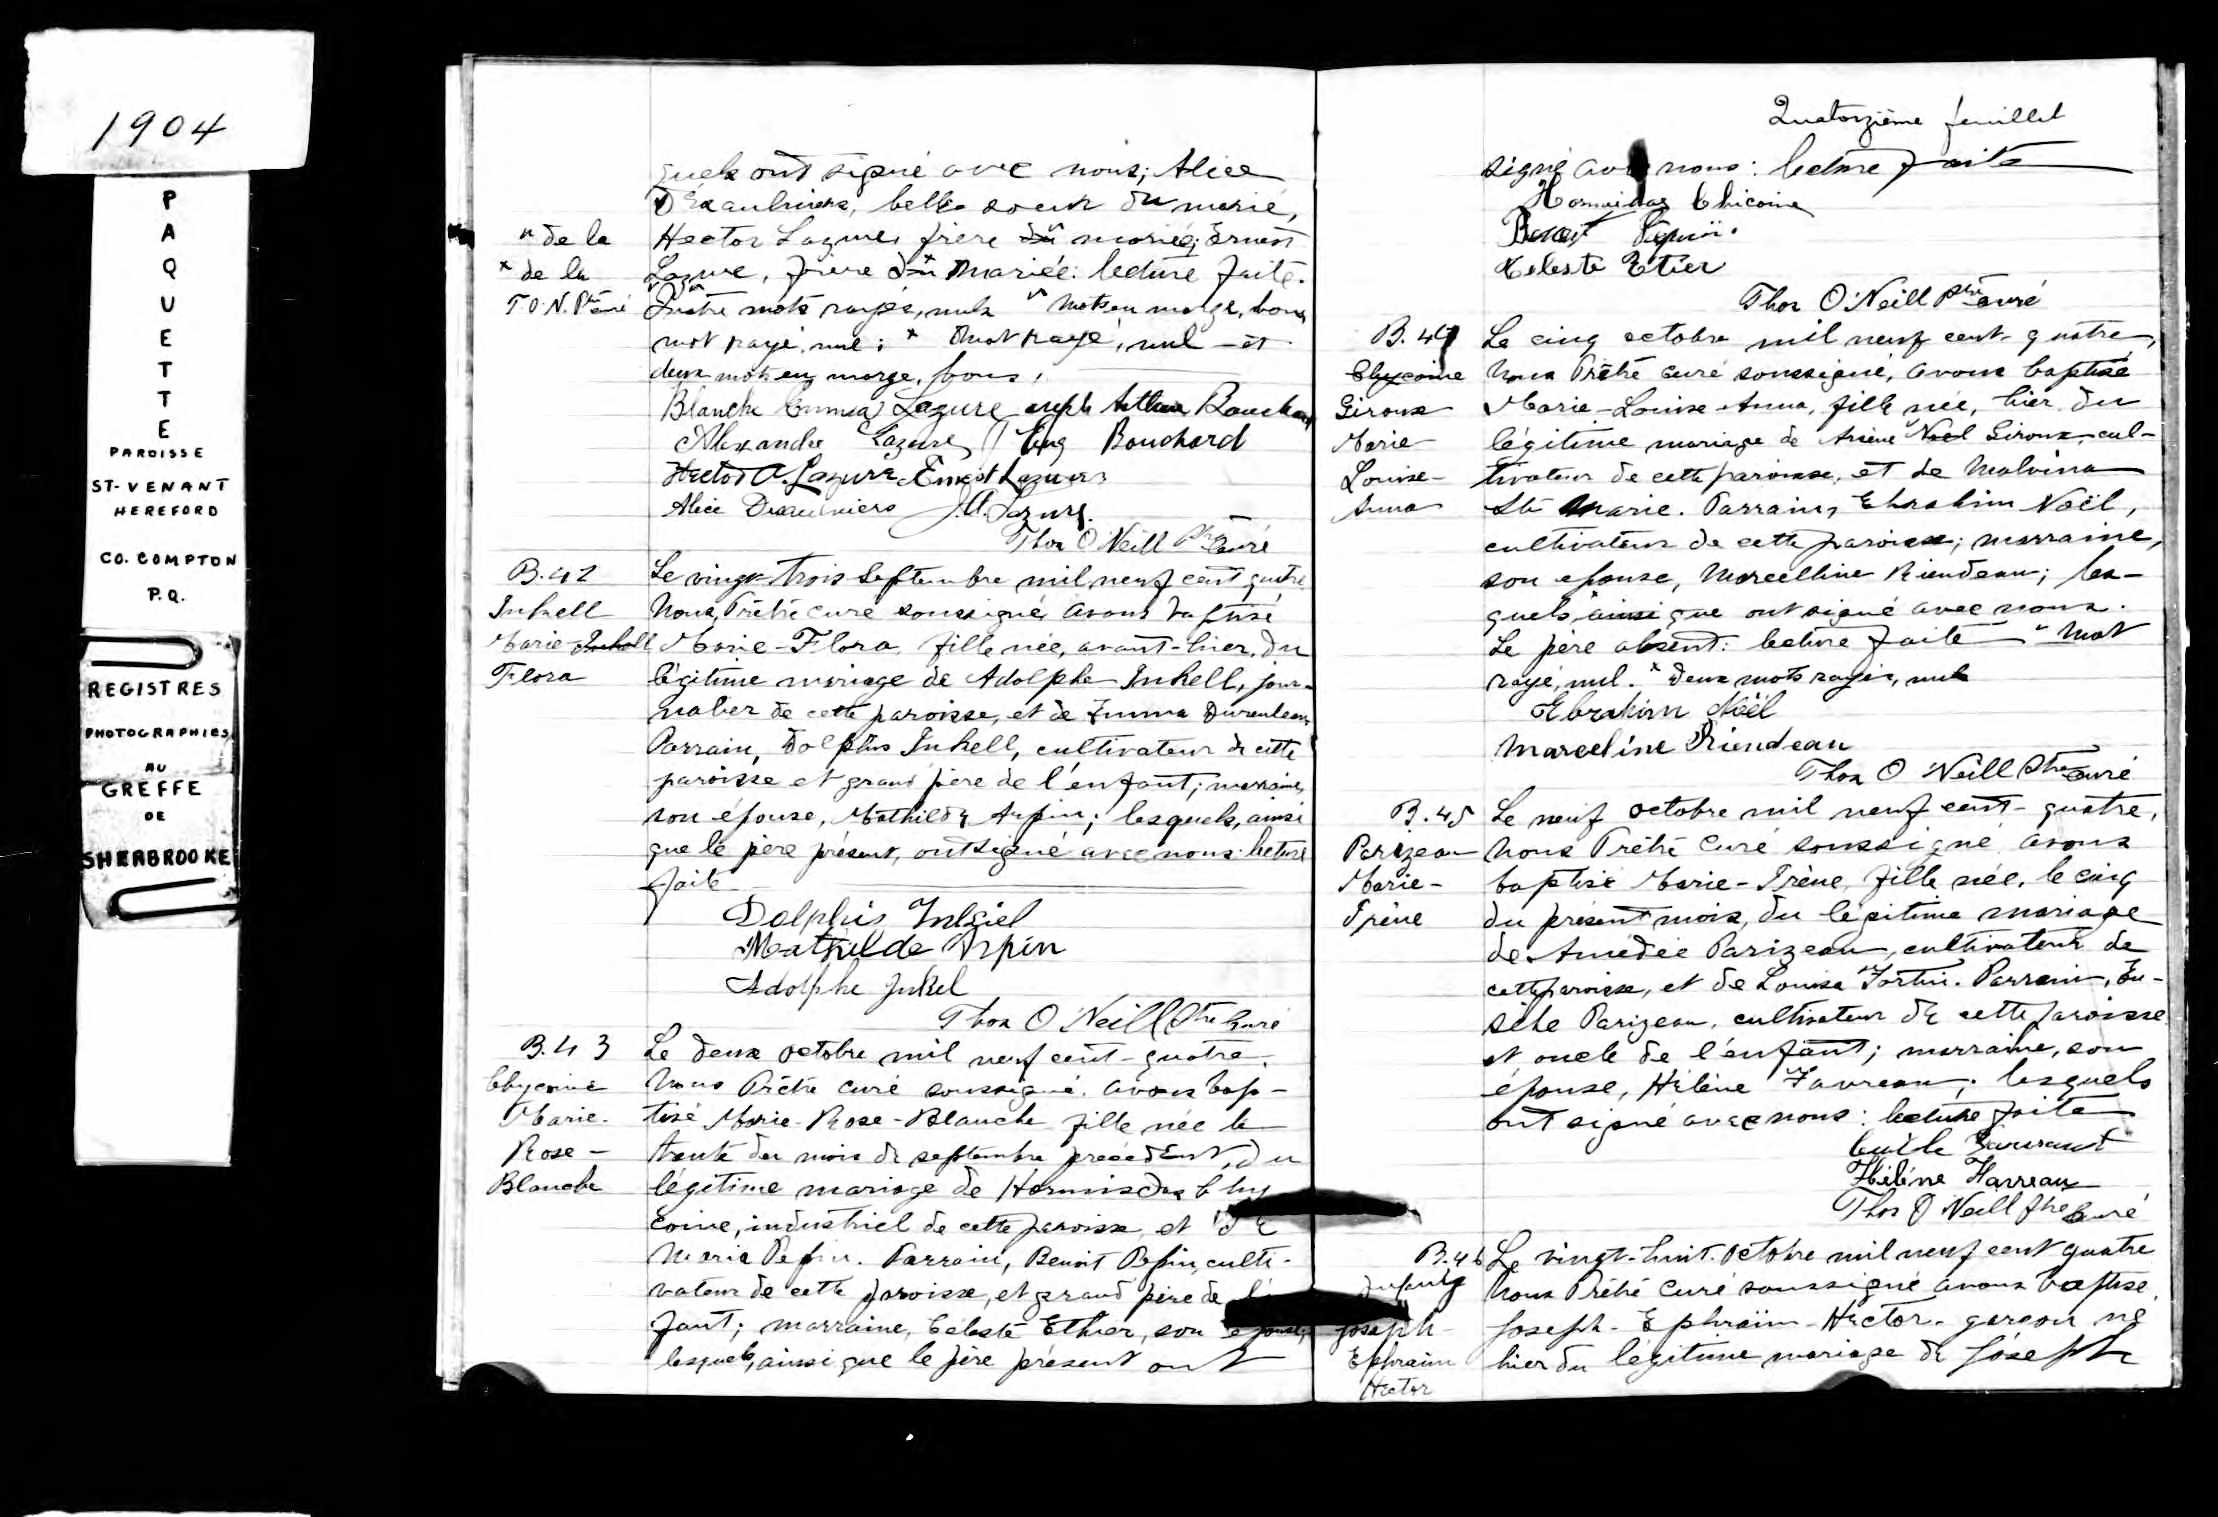 1904
PAQUETTE
PAROISSE
ST-VENANT
HEREFORD
CO. COMPTON
P.Q.
REGISTRES
PHOTOGRAPHIES
AU
GREFFE
DE
SHERBROOKE
quels ont signé avec nous; Alice
Désaulniers, belle soeur du marié,
" de la
Hector Lazure, frère du mariée; Ernest
x de la
Lazure, frère du mariée: lecture faite.
T.O.N. Ptre curé
Quatre mots rayés, nuls " Mots en marge, bons
mot rayé, nul; x mot rayé, nul et
deux mots en marge, bons.
Blanche Emma Lazure Joseph Arthur Bouchard
Alexandre Lazure Bouchard
Hector A. Lazure Ernest Lazure
Alice Desaulniers J.A. Lazure.
Thos O'Neill Ptre Curé
B.42
Inkell
Marie Inkell
Flora
Le vingt-trois Septembre mil neuf cent quatre
Nous, Prêtre curé soussigné avons baptisé
Marie-Flora, fille née, avant-hier, du
légitime mariage de Adolphe Inkell, jour-
nalier de cette paroisse, et de Emma Dureuleau
Parrain, Dolphis Inkell, cultivateur de cette
paroisse et grand père de l'enfant; marraine,
son épouse, Mathilde Arpin; lesquels, ainsi
que le père présent, ont signé avec nous: lecture
faite
Dolphis Inkiel
Mathilde Arpin
Adolphe Inkel
Thos O'Neill Ptre Curé
B.43
Chycoine
Marie-
Rose-
Blanche
Le deux octobre mil neuf cent-quatre,
Nous Prêtre curé soussigné, avons bap-
tisé Marie-Rose-Blanche fille née le
trente du mois de septembre précédent, du
légitime mariage de Hormisdas Chy
coine, industriel de cette paroisse, et de
Maria Pepin. Parrain, Benoit Pepin, culti-
vateur de cette paroisse, et grand père de
fant; marraine, Céleste Ethier, son épouse,
lesquels, ainsi que le père présent ont
Quatorzième feuillet
signé avec nous: lecture faite
Hormidas Chicoine
Benoit Pepin
Celeste Etier
Thos O'Neill Ptre curé
B.44
Chycoine
Giroux
Marie-
Louise-
Anna
Le cinq octobre mil neuf cent-quatre,
Nous Prêtre curé soussigné, avons baptisé
Marie-Louise-Anna, fille née, hier, du
légitime mariage de Arsène Noel Giroux, cul-
tivateur de cette paroisse, et de Malvina
Ste Marie. Parrain, Ehrakim Noël,
cultivateur de cette paroisse; marraine,
son épouse, Marcelline Riendeau; les-
quels ainsi que ont signé avec nous.
Le père absent: lecture faite " Mot
rayé, nul. x Deux mots rayés, nuls
Ebrakim Noël
Marceline Riendeau
Thos O'Neill Ptre curé
B.45
Parizeau
Marie-
Irène
Le neuf octobre mil neuf cent-quatre,
Nous Prêtre Curé soussigné avons
baptisé Marie-Irène, fille née, le cinq
du présent mois, du légitime mariage
de Amédée Parizeau, cultivateur de
cette paroisse, et de Louisa Fortin. Parrain, Eu-
sèbe Parizeau, cultivateur de cette paroisse
et oncle de l'enfant; marraine, son
épouse, Hélène Favreau; lesquels
ont signé avec nous: lecture faite
Hélène Farreau
Thos O'Neill Ptre Curé
B.46
Joseph-
Ephraim
Hector
Le vingt-huit octobre mil neuf cent quatre
Nous Prêtre Curé soussigné avons baptisé
Joseph-Ephraïm-Hector, garçon né
hier du légitime mariage de Joseph